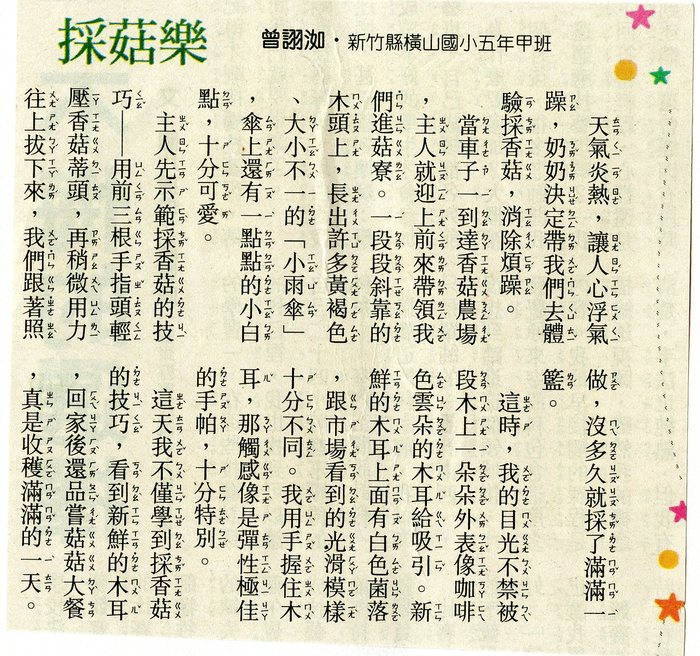 採菇樂
曾詡泇・新竹縣橫山國小五年甲班
天氣炎熱，讓人心浮氣
躁，奶奶決定帶我們去體
驗採香菇，消除煩躁。
當車子一到達香菇農場
，主人就迎上前來帶領我
們進菇寮。一段段斜靠的
木頭上，長出許多黃褐色
、大小不一的「小雨傘」
，傘上還有一點點的小白
點，十分可愛。
主人先示範採香菇的技
巧──用前三根手指頭輕
壓香菇蒂頭，再稍微用力
往上拔下來，我們跟著照
做，沒多久就採了滿滿一
籃。
這時，我的目光不禁被
段木上一朵朵外表像咖啡
色雲朵的木耳給吸引。新
鮮的木耳上面有白色菌落
，跟市場看到的光滑模樣
十分不同。我用手握住木
耳，那觸感像是彈性極佳
的手帕，十分特別。
這天我不僅學到採香菇
的技巧，看到新鮮的木耳
，回家後還品嘗菇菇大餐
，真是收穫滿滿的一天。